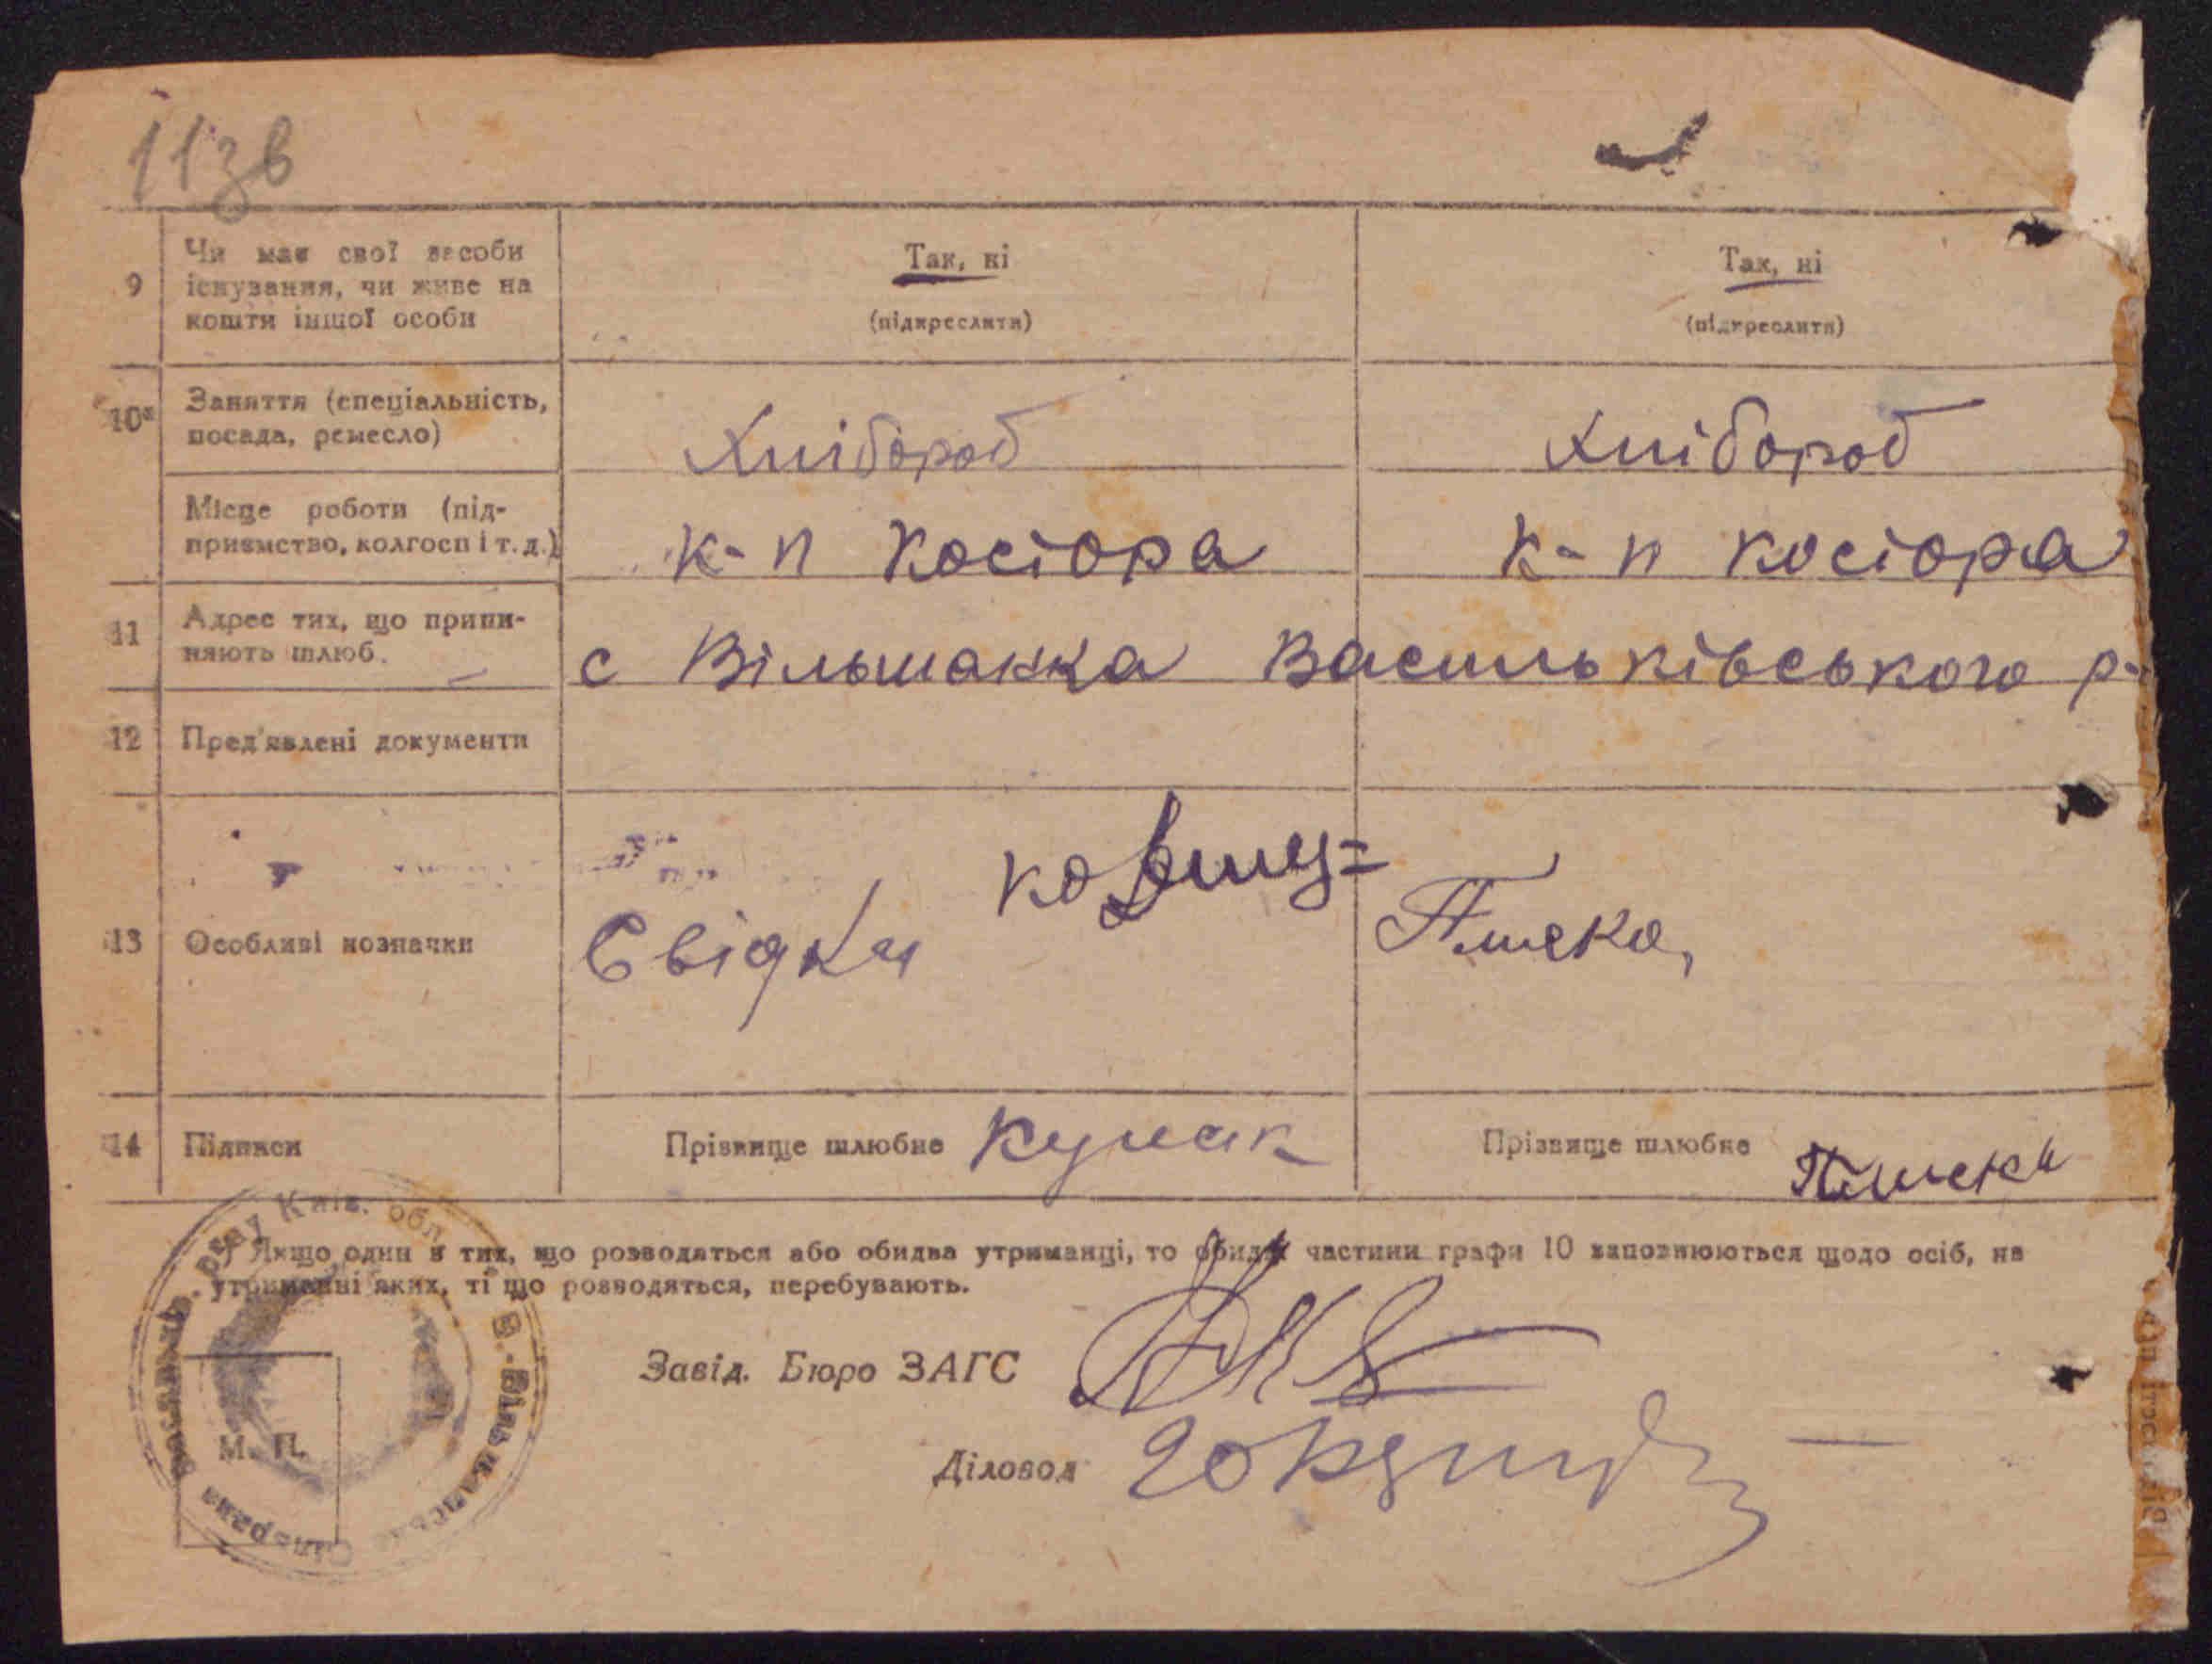 113в
9 Чи має свої засоби існування, чи живе на кошти іншої особи
Так, ні
(підкреслити)
Так, ні
(підкреслити)
10* Заняття (спеціальність, посада, ремесло)
Хлібороб
Хлібороб
Місце роботи (підприємство, колгосп і т. д.)
к-п Косіора
к-п Косіора
11 Адрес тих, що припиняють шлюб.
с Вільшанка Васильківського р-
12 Пред'явлені документи
13 Особливі нозначки
Свідки
14 Підписи
Прізвище шлюбне
Прізвище шлюбне
*) Якщо один з тих, що розводяться або обидва утриманці, то обидві частини графи 10 заповнюються щодо осіб, на
утриманні яких, ті що розводяться, перебувають.
Завід. Бюро ЗАГС
Діловод
М. П.